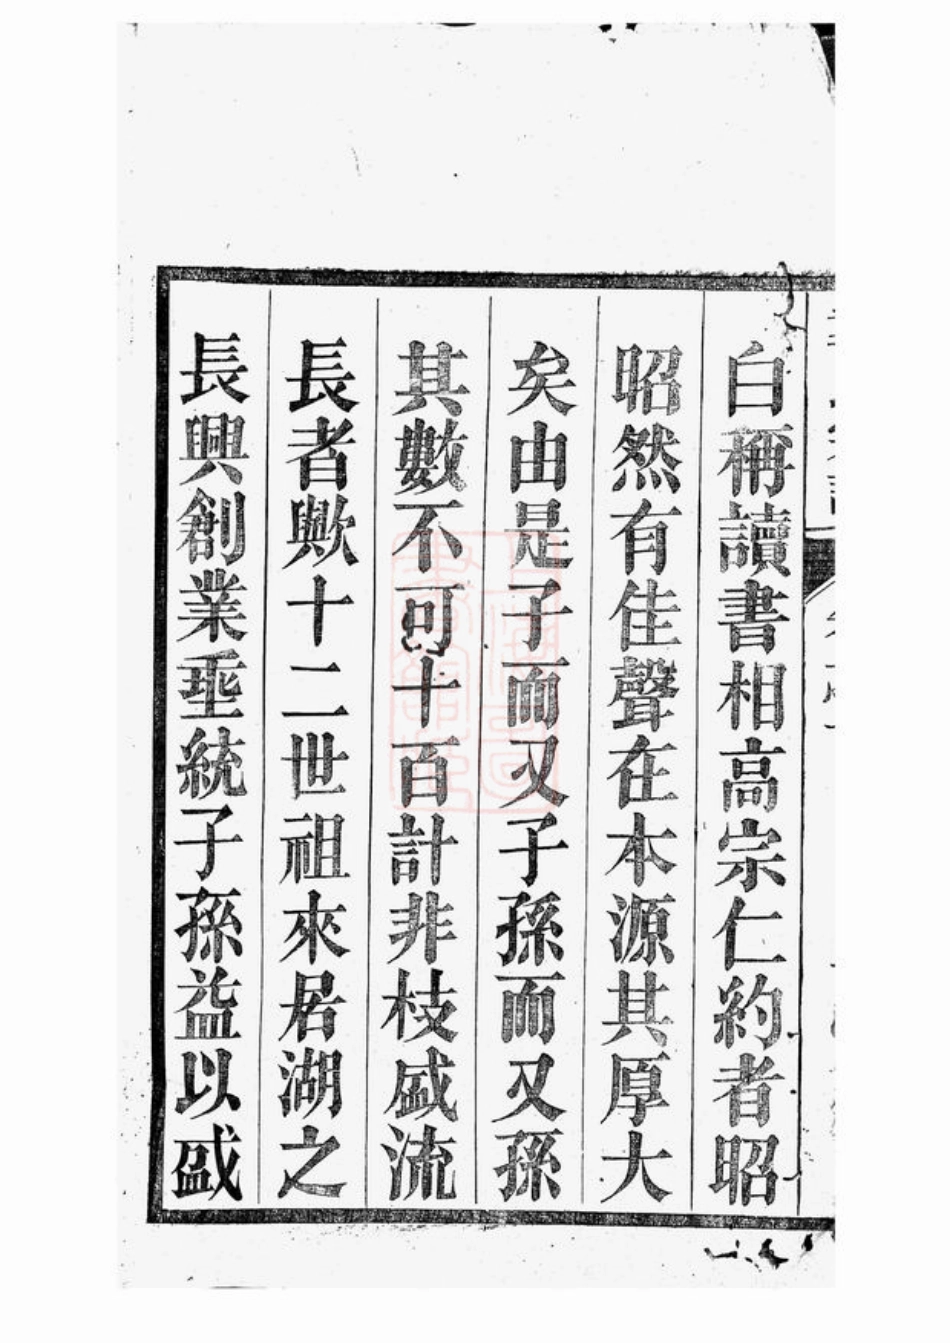 白稱讀書相高宗仁約者昭
昭然有佳聲在本源其厚大
矣由是子而又子孫而又孫
其數不可十百計非枝盛流
長者歟十二世祖來居湖之
長興創業垂統子孫益以盛